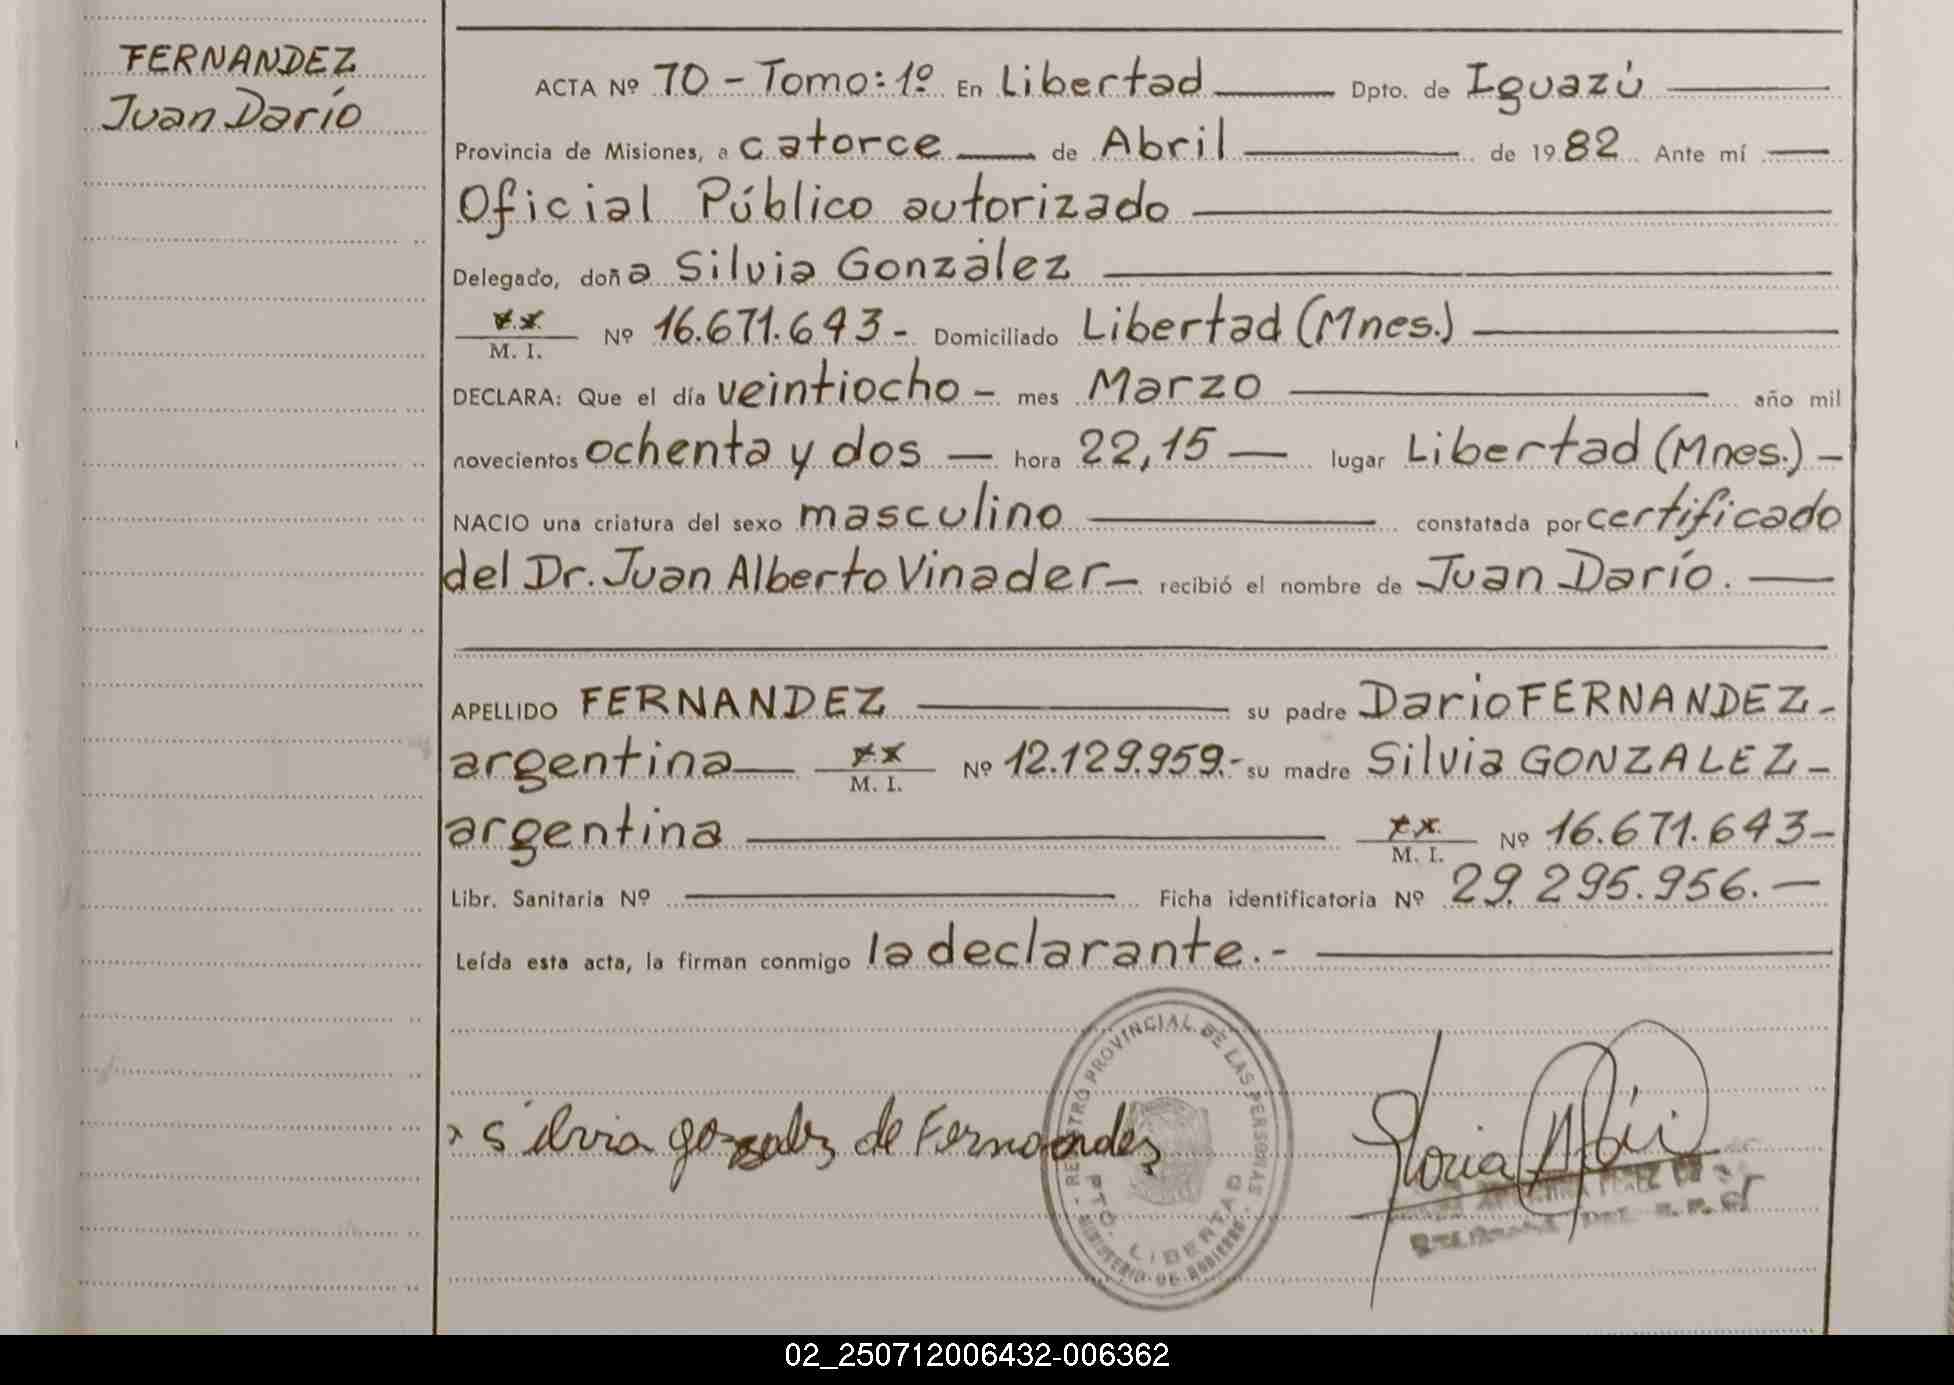 FERNANDEZ
Juan Darío
ACTA Nº 70 - Tomo: 1º En Libertad Dpto. de Iguazú
Provincia de Misiones, a catorce de Abril de 1982 Ante mí
Oficial Público autorizado
Delegado, doña Silvia González
M. I. Nº 16.671.643- Domiciliado Libertad (Mnes.)
DECLARA: Que el día veintiocho - mes Marzo año mil
novecientos ochenta y dos — hora 22,15 — lugar Libertad (Mnes.) -
NACIO una criatura del sexo masculino constatada por certificado
del Dr. Juan Alberto Vinader - recibió el nombre de Juan Darío. —
APELLIDO FERNANDEZ su padre Dario FERNANDEZ-
argentina M. I. Nº 12.129.959.- su madre Silvia GONZALEZ-
argentina M. I. Nº 16.671.643-
Libr. Sanitaria Nº Ficha identificatoria Nº 29.295.956. —
Leída esta acta, la firman conmigo la declarante.-
Silvia gonzalez de Fernandez
REGISTRO PROVINCIAL DE LAS PERSONAS
PTO. LIBERTAD
MINISTERIO DE GOBIERNO
Gloria
02_250712006432-006362